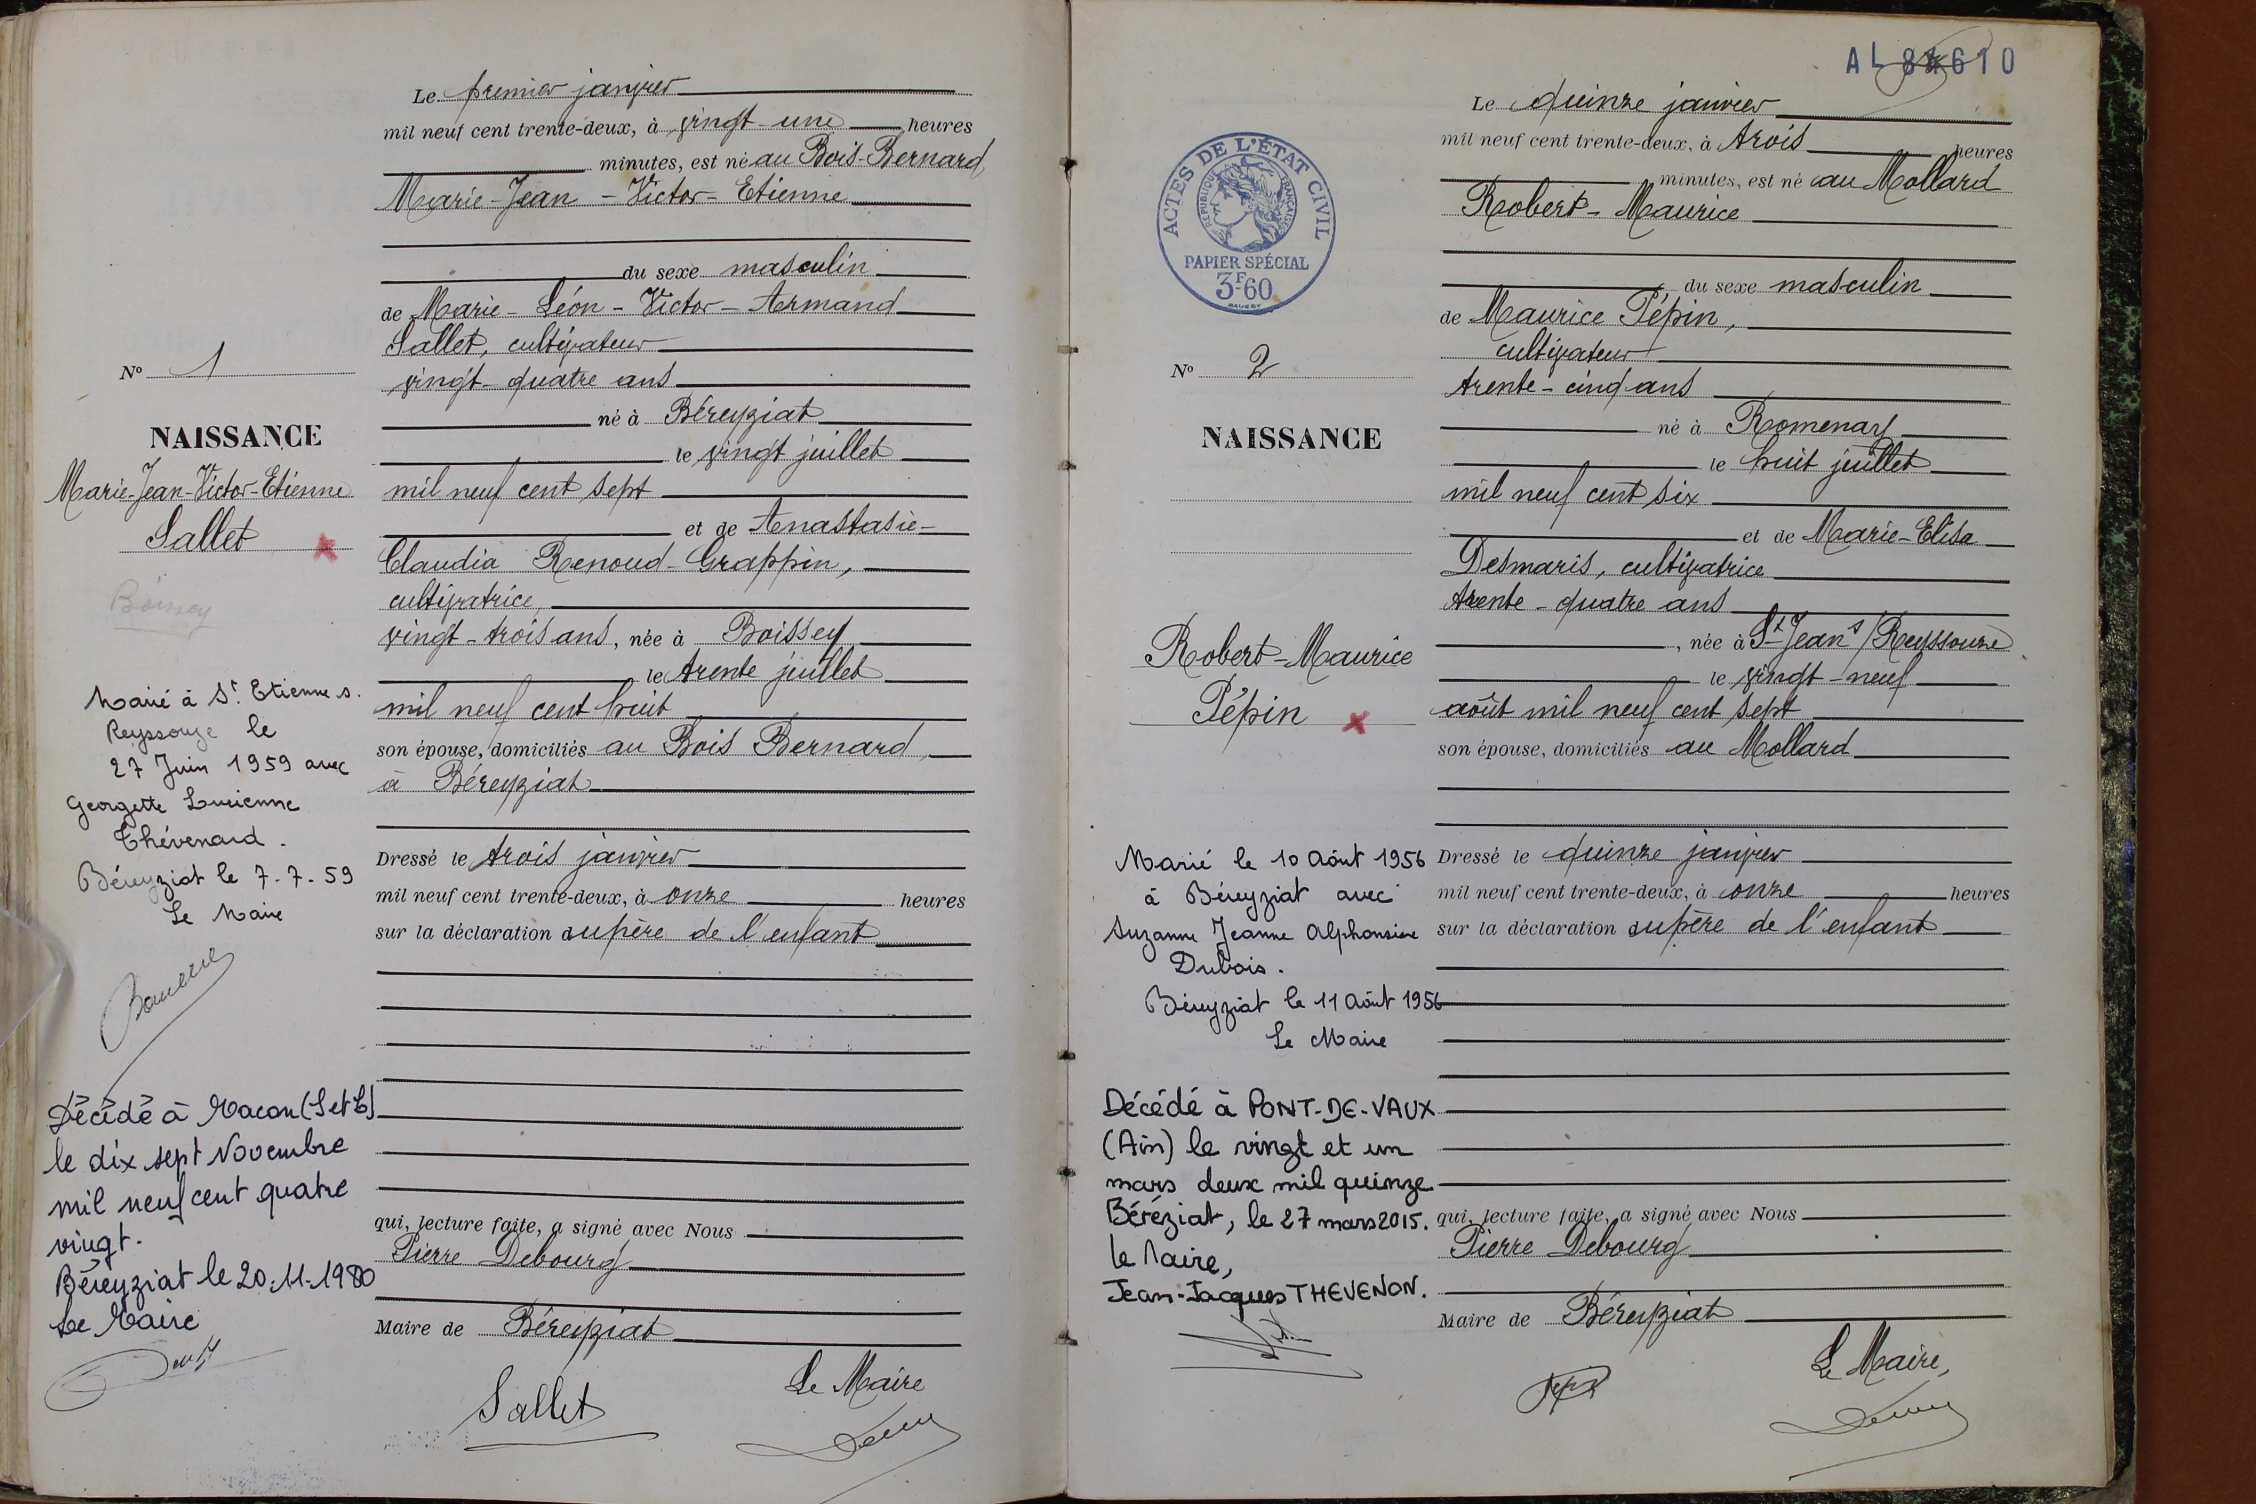 Le premier janvier
mil neuf cent trente-deux, à vingt-une heures
minutes, est né au Bois-Bernard,
Marie-Jean-Victor-Etienne
du sexe masculin
de Marie-Léon-Victor-Armand
Sallet, cultivateur
vingt-quatre ans
né à Béreyziat
le vingt juillet
mil neuf cent sept
et de Anastasie-
Claudia Renoud-Grappin,
cultivatrice,
vingt-trois ans, née à Boissey
le trente juillet
mil neuf cent huit
son épouse, domiciliés au Bois Bernard,
à Béreyziat
Dressé le trois janvier
mil neuf cent trente-deux, à onze heures
sur la déclaration du père de l'enfant
qui, lecture faite, a signé avec Nous
Pierre Debourg
Maire de Béreyziat
Sallet
Le Maire
No 1
NAISSANCE
Marie-Jean-Victor-Etienne
Sallet
Boissey
Marié à St. Etienne s.
Reyssouze le
27 Juin 1959 avec
Georgette Lucienne
Thévenard.
Béreyziat le 7-7-59
Le Maire
Décédé à Macon (S et L)
le dix sept Novembre
mil neuf cent quatre
vingt.
Béreyziat le 20-11-1980
Le Maire
AL 610
ACTES DE L'ÉTAT CIVIL
RÉPUBLIQUE FRANÇAISE
PAPIER SPÉCIAL
3F60
No 2
NAISSANCE
Robert-Maurice
Pépin
Marié le 10 Août 1956
à Béreyziat avec
Suzanne Jeanne Alphonsine
Dubois.
Béreyziat le 11 Août 1956
Le Maire
Décédé à PONT-DE-VAUX
(Ain) le vingt et un
mars deux mil quinze
Béréziat, le 27 mars 2015.
le Maire,
Jean-Jacques THEVENON.
Le quinze janvier
mil neuf cent trente-deux, à trois heures
minutes, est né au Mollard
Robert-Maurice
du sexe masculin
de Maurice Pépin,
cultivateur
trente-cinq ans
né à Romenay
le huit juillet
mil neuf cent six
et de Marie-Elisa
Desmaris, cultivatrice
trente-quatre ans
, née à St Jean s/Reyssouze
le vingt-neuf
août mil neuf cent sept
son épouse, domiciliés au Mollard
Dressé le quinze janvier
mil neuf cent trente-deux, à onze heures
sur la déclaration du père de l'enfant
qui, lecture faite, a signé avec Nous
Pierre Debourg
Maire de Béreyziat
Le Maire,